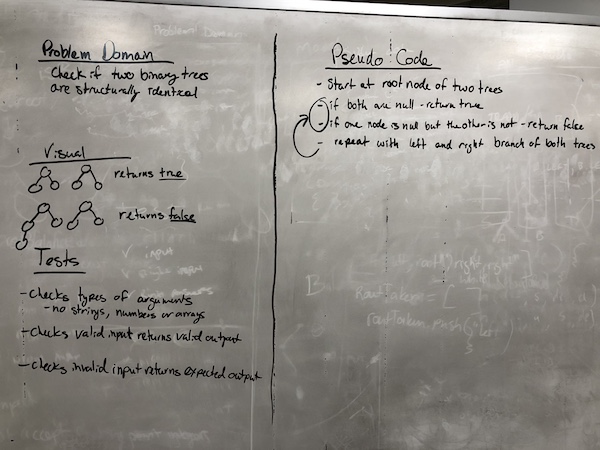 Problem Domain
Check if two binary trees
are structurally identical
Visual
returns true
returns false
Tests
- Checks types of arguments
- no strings, numbers or arrays
- Checks valid input returns valid output
- Checks invalid input returns expected output
Pseudo Code
- Start at root node of two trees
- if both are null - return true
- if one node is null but the other is not - return false
- repeat with left and right branch of both trees
Problem Domain
input
root right right
B
RootTaken = [
rootTaken.push(